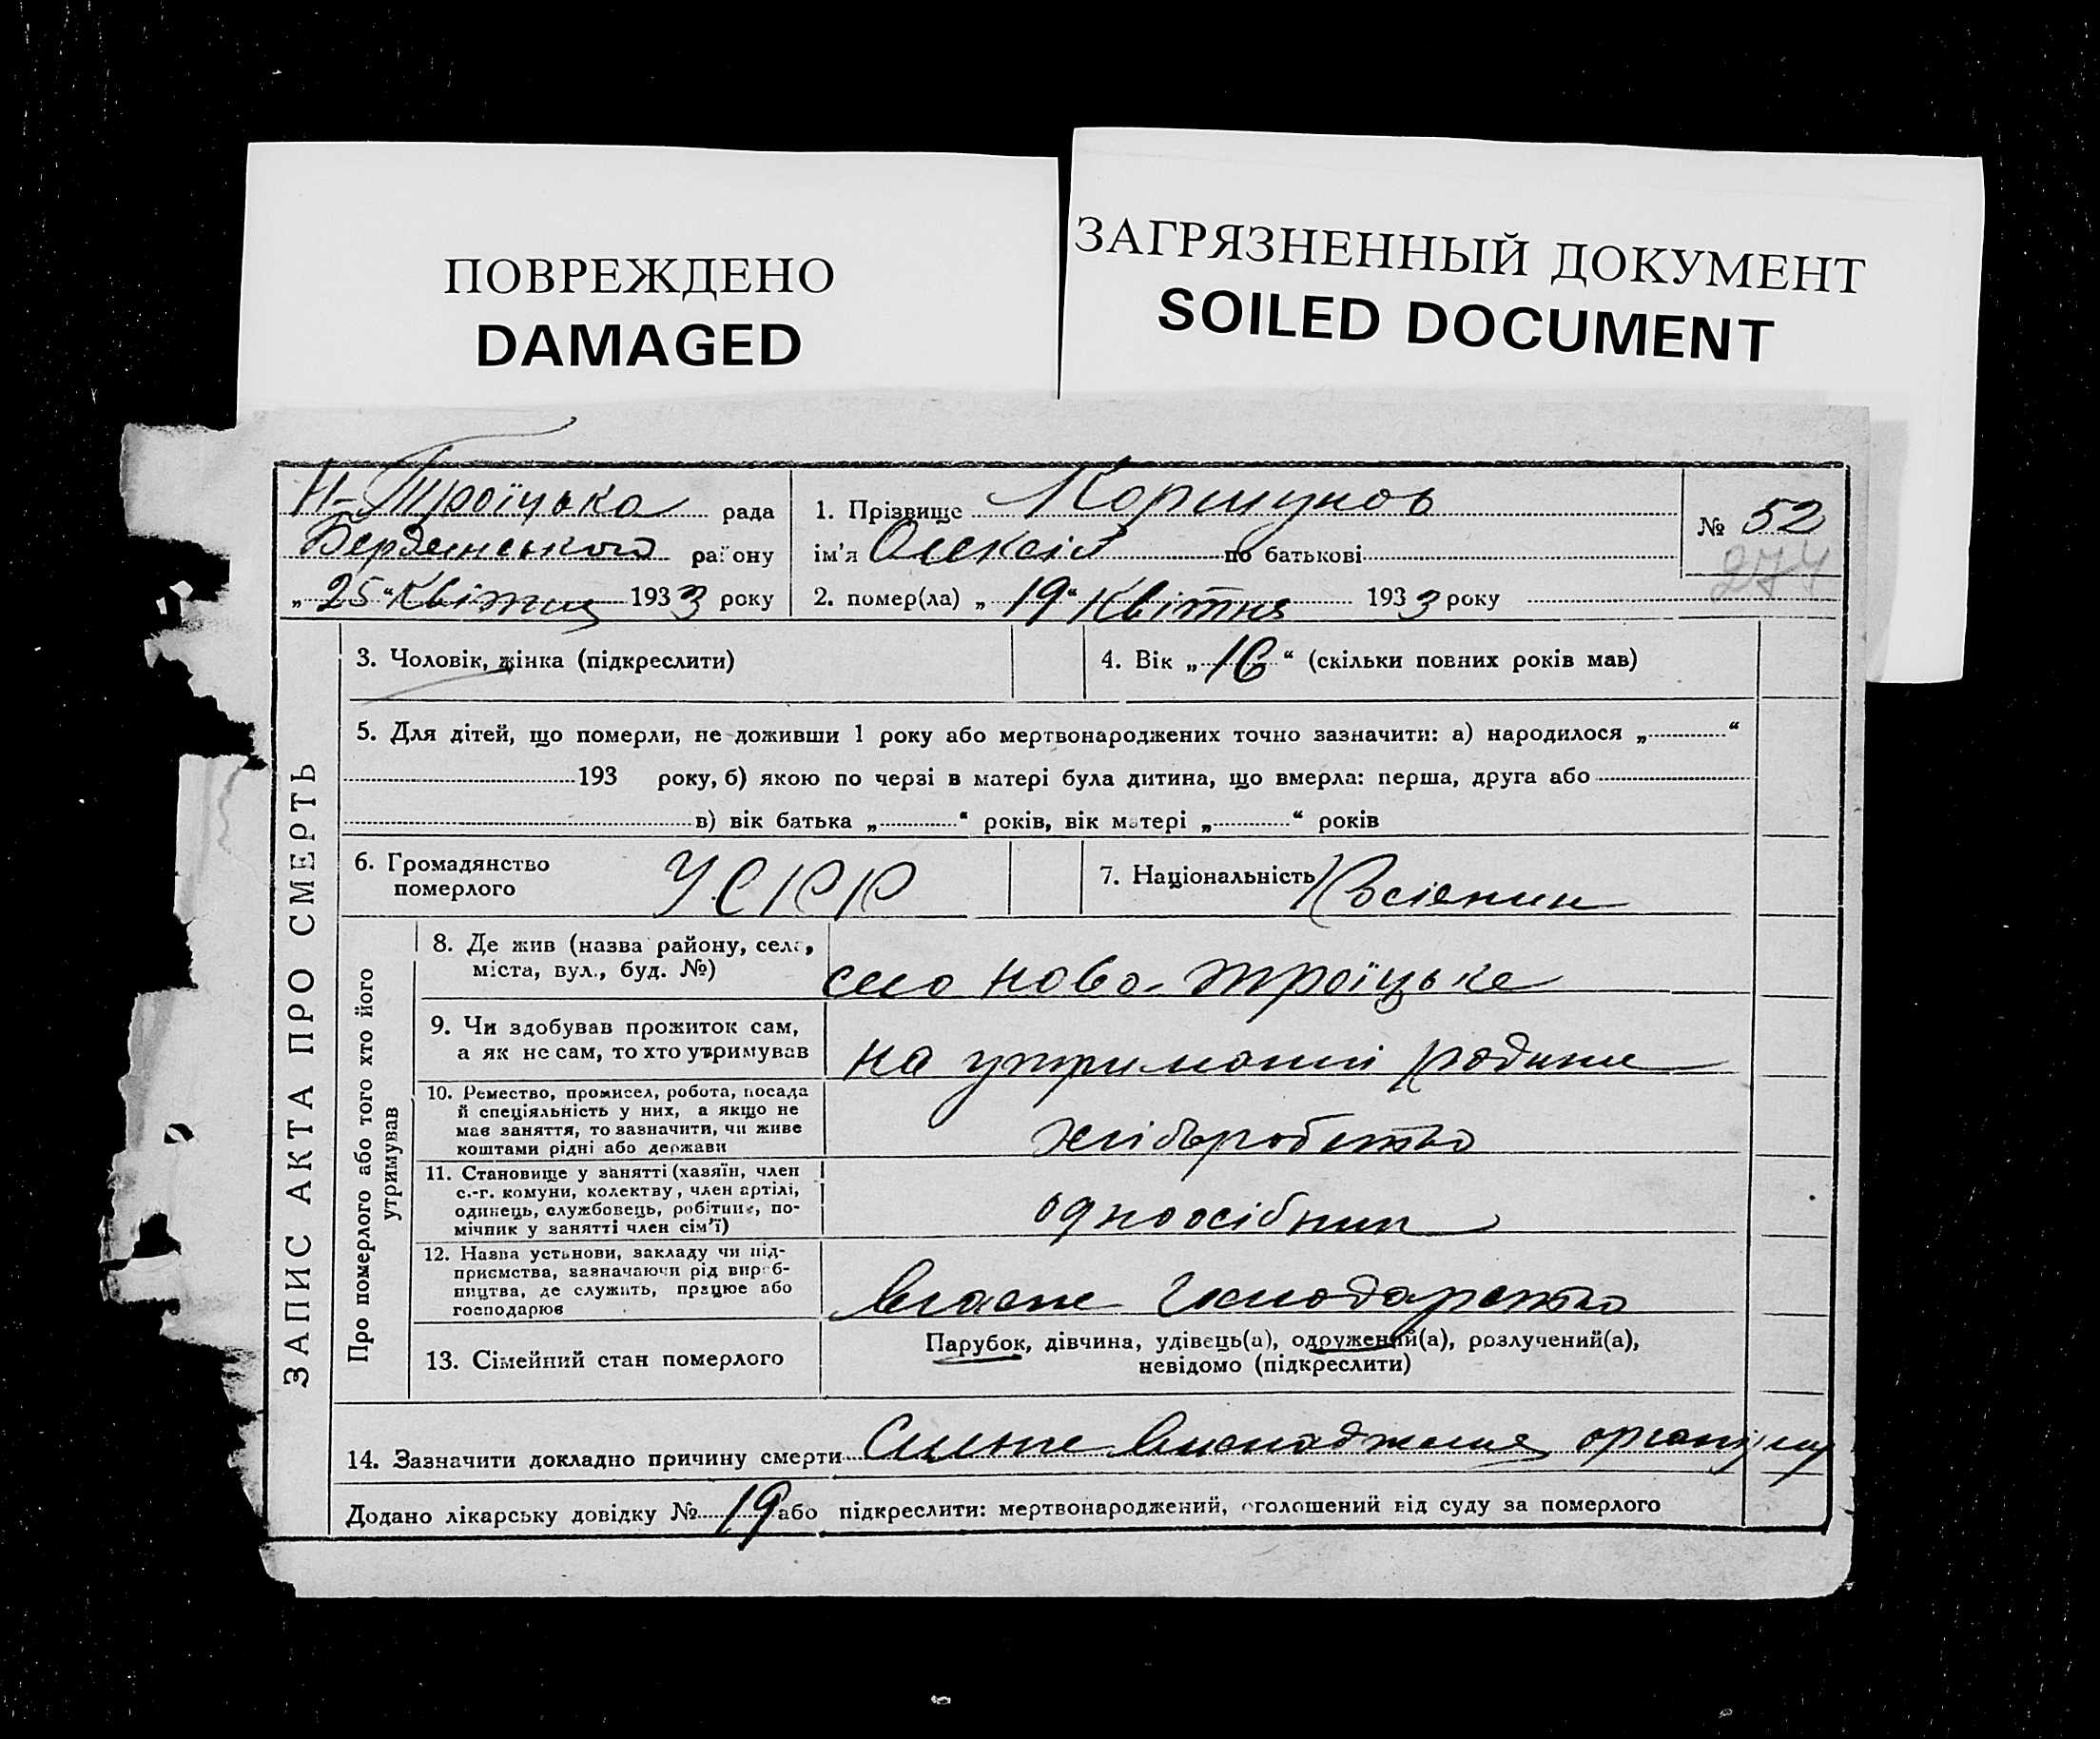 ПОВРЕЖДЕНО
DAMAGED
ЗАГРЯЗНЕННЫЙ ДОКУМЕНТ
SOILED DOCUMENT
Н-Троїцька рада
Бердянського району
„25“ Квітня 1933 року
1. Прізвище Коршунов
ім'я Олексій по батькові
2. помер(ла) „19“ Квітня 1933 року
№ 52
274
ЗАПИС АКТА ПРО СМЕРТЬ
3. Чоловік, жінка (підкреслити)
4. Вік „16“ (скільки повних років мав)
5. Для дітей, що померли, не доживши 1 року або мертвонароджених точно зазначити: а) народилося „ “
193 року, б) якою по черзі в матері була дитина, що вмерла: перша, друга або
в) вік батька „ “ років, вік матері „ “ років
6. Громадянство
померлого
УСРР
7. Національність Росіянин
Про померлого або того хто його
утримував
8. Де жив (назва району, села,
міста, вул., буд. №)
село Ново-Троїцьке
9. Чи здобував прожиток сам,
а як не сам, то хто утримував
на утриманні родини
10. Ремество, промисел, робота, посада
й спеціяльність у них, а якщо не
має заняття, то зазначити, чи живе
коштами рідні або держави
хліборобство
11. Становище у занятті (хазяїн, член
с.-г. комуни, колектву, член артілі,
одинець, службовець, робітник, по-
мічник у занятті член сім'ї)
одноосібник
12. Назва установи, закладу чи під-
приємства, зазначаючи рід вироб-
ництва, де служить, працює або
господарює
власне господарство
13. Сімейний стан померлого
Парубок, дівчина, удівець(а), одружений(а), розлучений(а),
невідомо (підкреслити)
14. Зазначити докладно причину смерти Сильне виснаження організму
Додано лікарську довідку № 19 або підкреслити: мертвонароджений, оголошений від суду за померлого